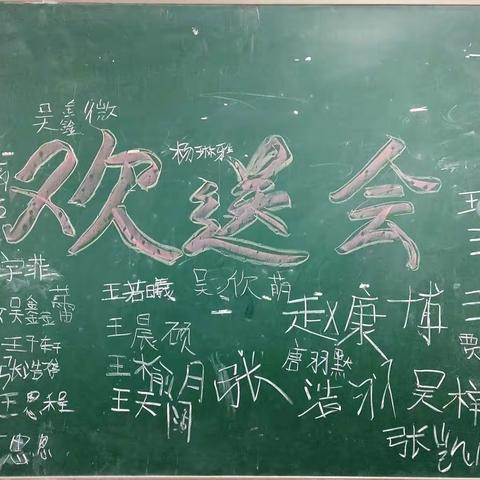 吴鑫微
杨琳雅
欢送会
宇菲
吴鑫蕾
王若曦
吴欣萌
王晨硕
赵康博
王子轩
张浩
唐羽默
王榆月
王思程
王天阔
张浩
吴梓
思恩
张凯
贾